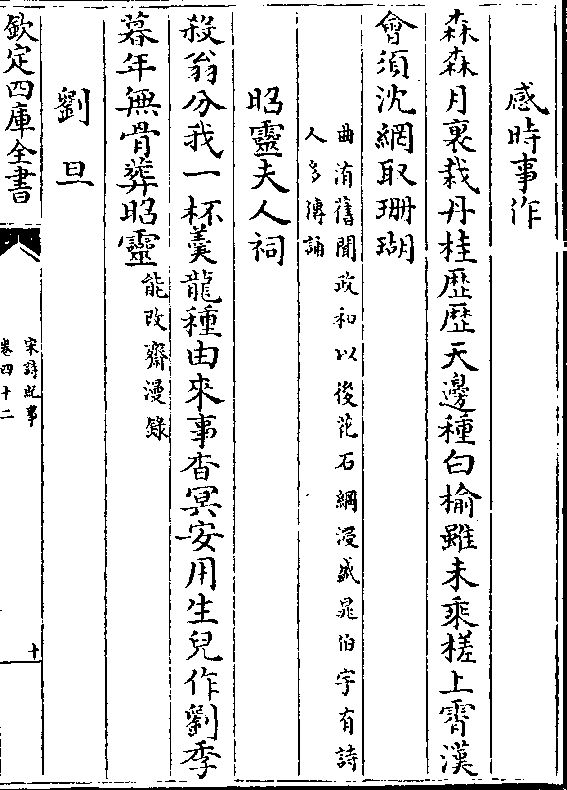 感時事作
森森月裏栽丹桂歴歴天邊種白榆雖未乘槎上霄漢
會須沈網取珊瑚
曲洧舊聞政和以後花石綱浸盛晁伯宇有詩
人多傳誦
昭靈夫人祠
殺翁分我一杯羹龍種由來事杳冥安用生兒作劉季
暮年無骨葬昭靈能改齋漫錄
劉旦
欽定四庫全書
宋詩紀事
卷四十二
十